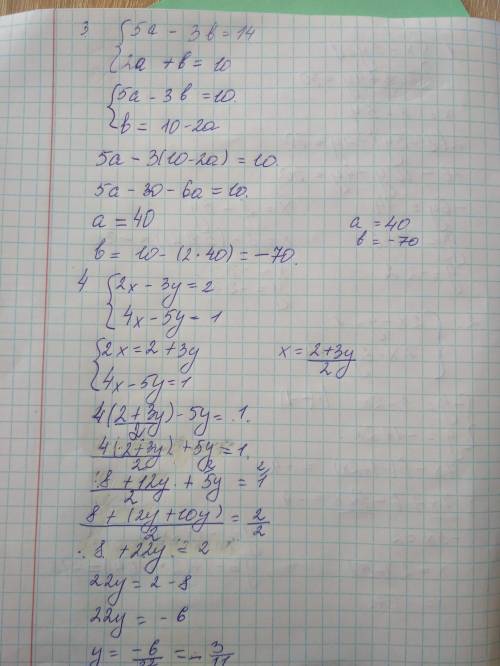 3 { 5a - 3b = 14
2a + b = 10
{ 5a - 3b = 10.
b = 10 - 2a
5a - 3(10 - 2a) = 10.
5a - 30 - 6a = 10.
a = 40
a = 40
b = 10 - (2·40) = -70.
b = -70
4 { 2x - 3y = 2
4x - 5y = 1
{ 2x = 2 + 3y
x = (2+3y)/2
4x - 5y = 1
4(2+3y)/2 - 5y = 1.
4(2+3y)/2 + 5y = 1.
2 2
8 + 12y/2 + 5y = 1
8 + (2y + 10y)/2 = 2/2
8 + 22y = 2
22y = 2 - 8
22y = - 6
y = -6/22 = - 3/11